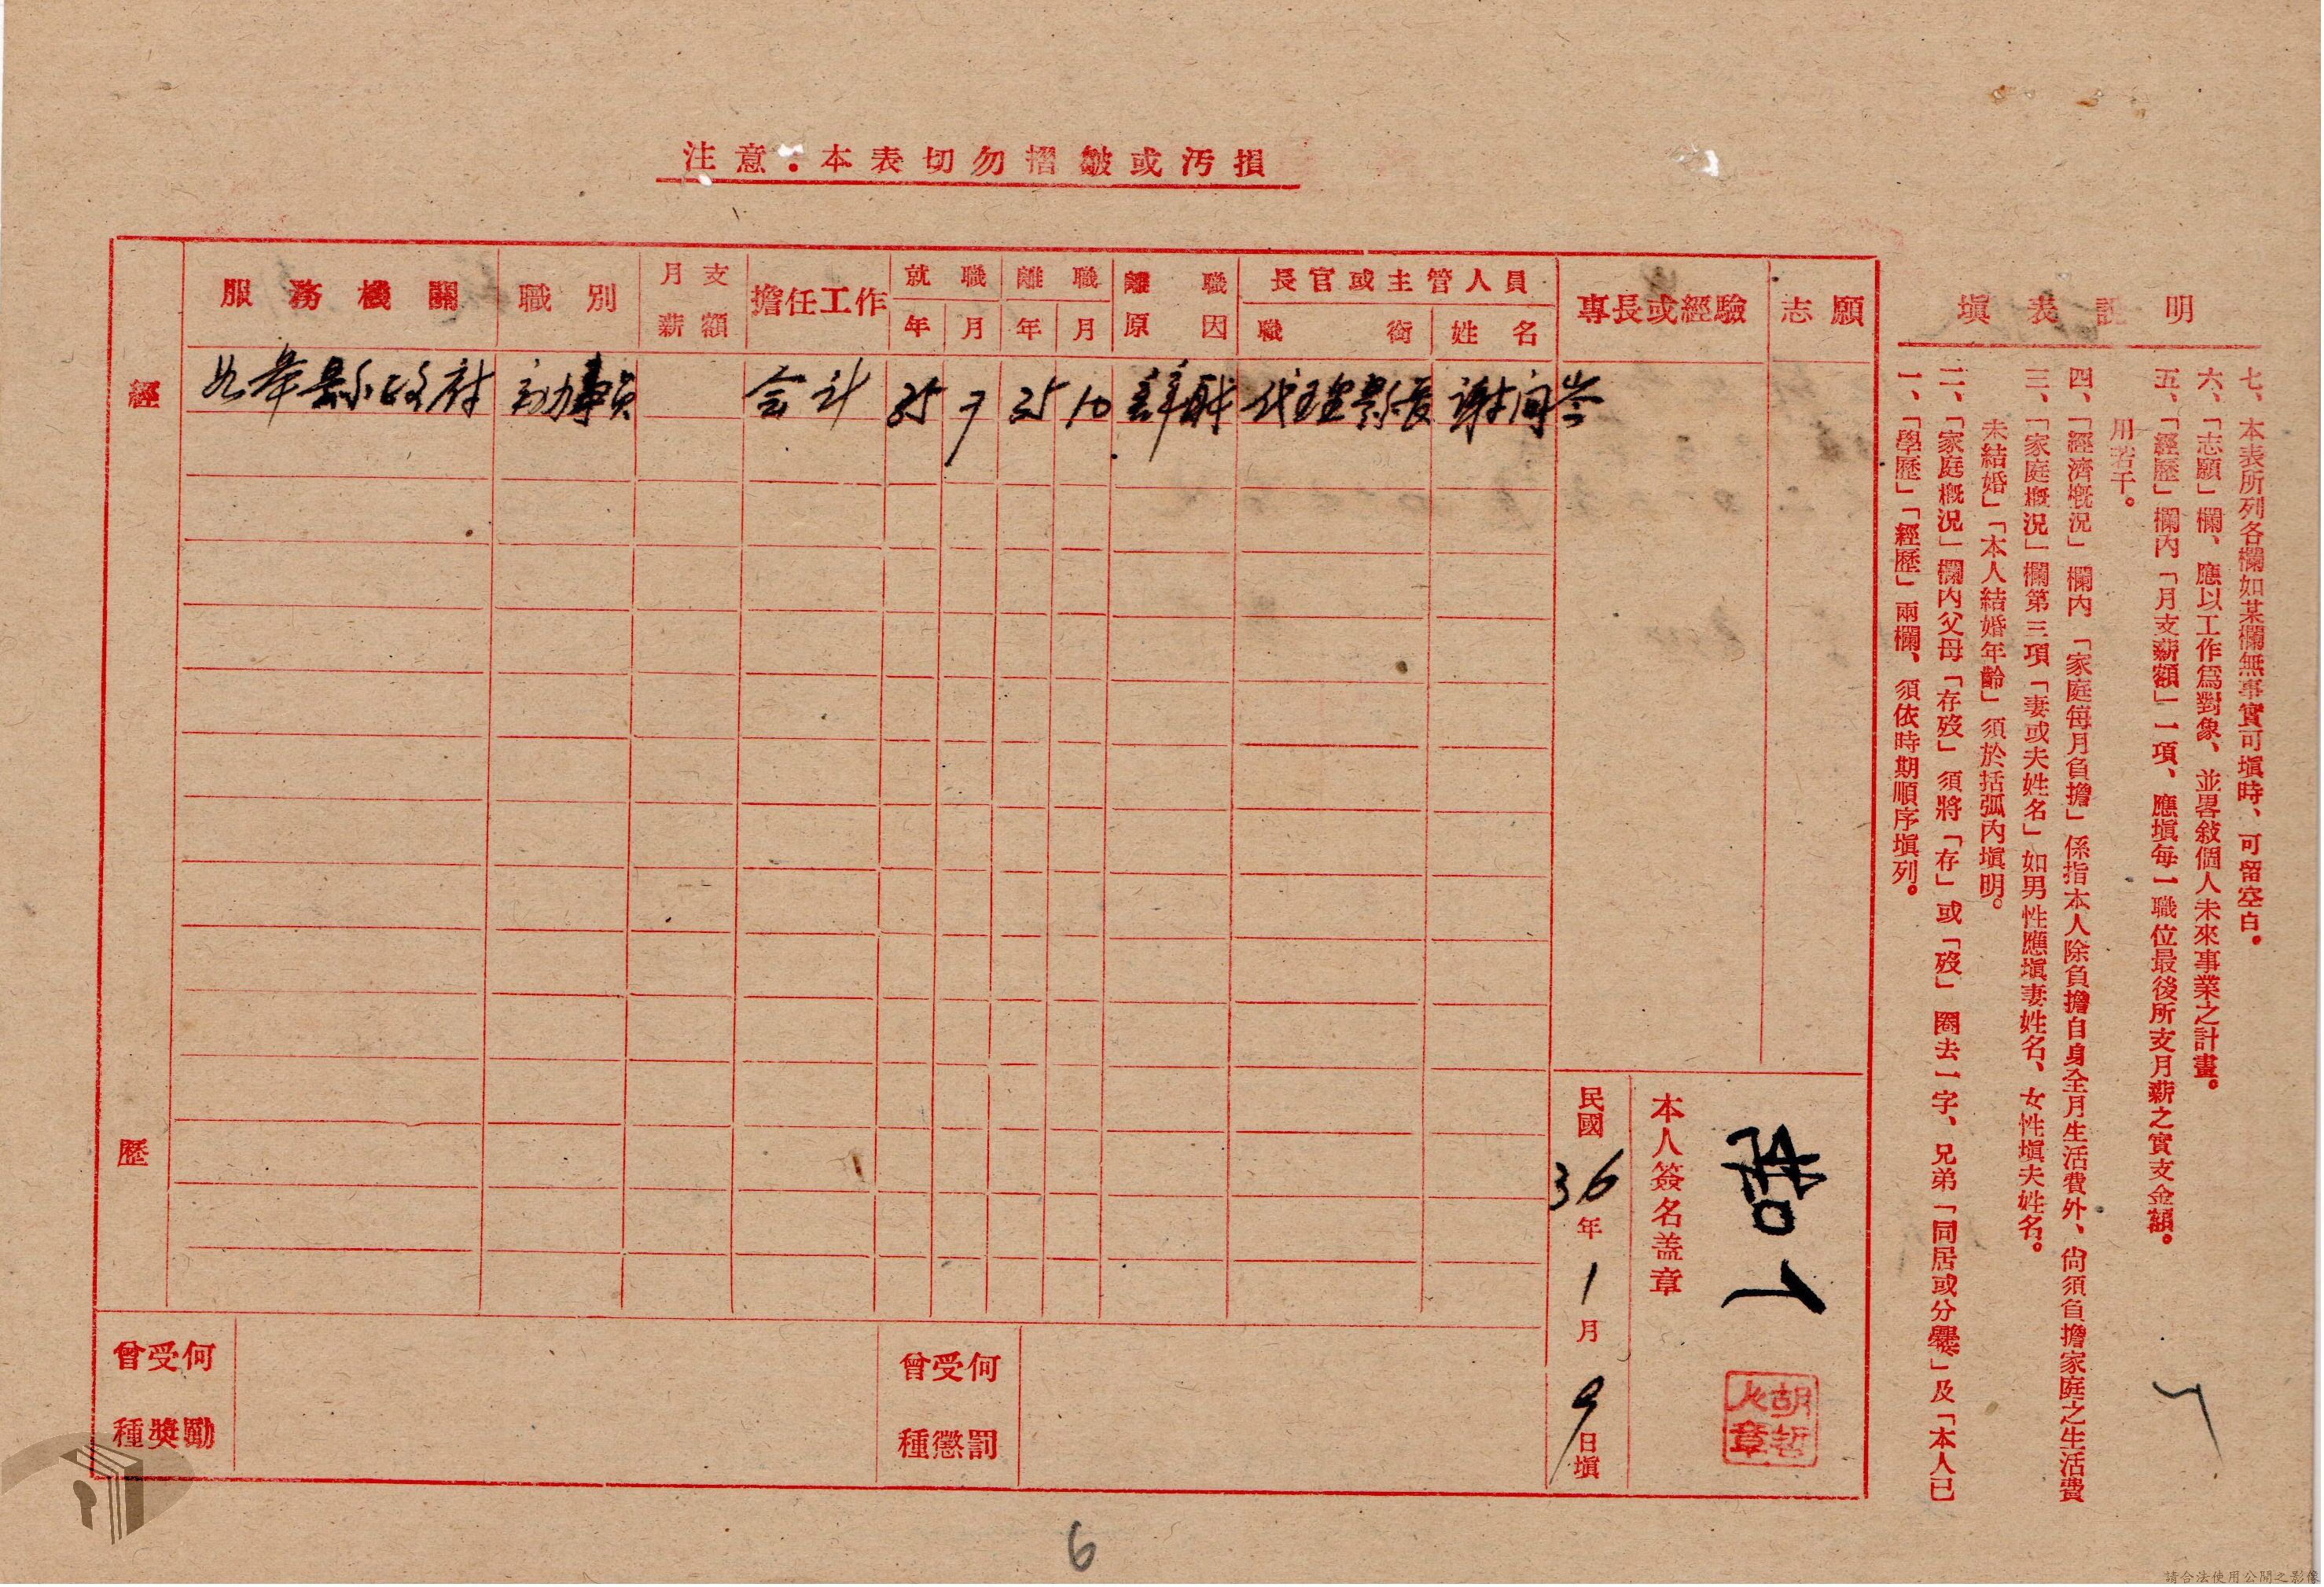 注意：本表切勿摺皺或汚損
經歷
服務機關
職別
月支薪額
擔任工作
就職
年
月
離職
年
月
離職原因
長官或主管人員
職銜
姓名
專長或經驗
志願
如皋縣政府
助事員
会计
35
7
35
10
辞职
代理縣長
曾受何種獎勵
曾受何種懲罰
民國36年1月9日塡
本人簽名盖章
胡哲人章
塡表說明
一、「學歷」「經歷」兩欄、須依時期順序塡列。
二、「家庭概況」欄內父母「存歿」須將「存」或「歿」圈去一字、兄弟「同居或分爨」及「本人已
未結婚」「本人結婚年齡」須於括弧內塡明。
三、「家庭概況」欄第三項「妻或夫姓名」如男性應塡妻姓名、女性塡夫姓名。
四、「經濟概況」欄內「家庭每月負擔」係指本人除負擔自身全月生活費外、尙須負擔家庭之生活費
用若干。
五、「經歷」欄內「月支薪額」一項、應塡每一職位最後所支月薪之實支金額。
六、「志願」欄、應以工作爲對象、並畧敍個人未來事業之計畫。
七、本表所列各欄如某欄無事實可塡時、可留空白。
6
請合法使用公開之影像